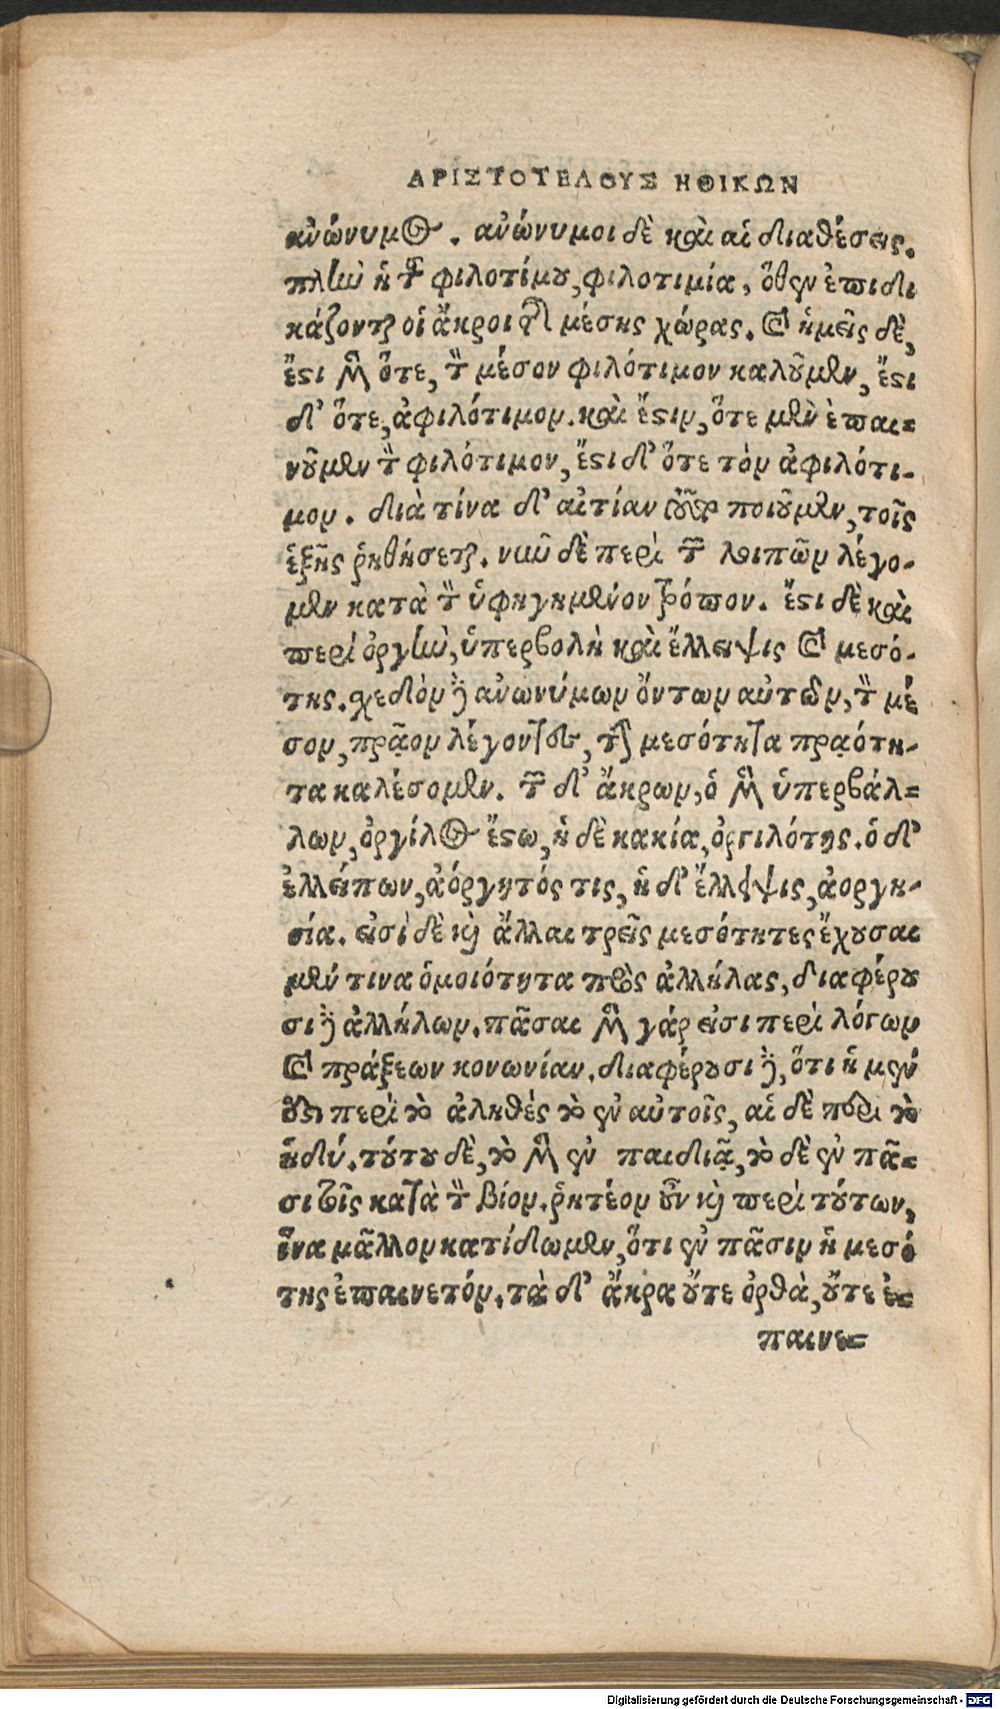 ΑΡΙΣΤΟΤΕΛΟΥΣ ΗΘΙΚΩΝ
ἀνώνυμος. ἀνώνυμοι δὲ καὶ αἱ διαθέσεις.
πλὴν ἡ τοῦ φιλοτίμου, φιλοτιμία, ὅθεν ἐπιδι
κάζονται οἱ ἄκροι τῆς μέσης χώρας. καὶ ἡμεῖς δὲ,
ἔστι μὲν ὅτε, τὸν μέσον φιλότιμον καλοῦμεν, ἔστι
δ' ὅτε, ἀφιλότιμον. καὶ ἔστιν, ὅτε μὲν ἐπαι=
νοῦμεν τὸν φιλότιμον, ἔστι δ' ὅτε τὸν ἀφιλότι-
μον. διὰ τίνα δ' αἰτίαν τοῦτο ποιοῦμεν, τοῖς
ἑξῆς ῥηθήσεται. νῦν δὲ περὶ τῶν λοιπῶν λέγο-
μεν κατὰ τὸν ὑφηγημένον τρόπον. ἔστι δὲ καὶ
περὶ ὀργὴν, ὑπερβολὴ καὶ ἔλλειψις καὶ μεσό-
της. σχεδὸν δὲ ἀνωνύμων ὄντων αὐτῶν, τὸν μέ
σον, πρᾷον λέγοντες, τὴν μεσότητα πραότη-
τα καλέσομεν. τῶν δ' ἄκρων, ὁ μὲν ὑπερβάλ=
λων, ὀργίλος ἔστω, ἡ δὲ κακία, ὀργιλότης. ὁ δ'
ἐλλείπων, ἀόργητός τις, ἡ δ' ἔλλειψις, ἀοργη-
σία. εἰσὶ δὲ καὶ ἄλλαι τρεῖς μεσότητες ἔχουσαι
μέν τινα ὁμοιότητα πρὸς ἀλλήλας, διαφέρου
σι δὲ ἀλλήλων. πᾶσαι μὲν γάρ εἰσι περὶ λόγων
καὶ πράξεων κονωνίαν. διαφέρουσι δὲ, ὅτι ἡ μέν
ἐστι περὶ τὸ ἀληθές τὸ ἐν αὐτοῖς, αἱ δὲ περὶ τὸ
ἡδύ. τούτου δὲ, τὸ μὲν ἐν παιδιᾷ, τὸ δὲ ἐν πᾶ=
σι τοῖς κατὰ τὸν βίον. ῥητέον οὖν καὶ περὶ τούτων,
ἵνα μᾶλλον κατίδωμεν, ὅτι ἐν πᾶσιν ἡ μεσό
της ἐπαινετόν. τὰ δ' ἄκρα οὔτε ὀρθὰ, οὔτε ἐ=
παινε=
Digitalisierung gefördert durch die Deutsche Forschungsgemeinschaft - DFG